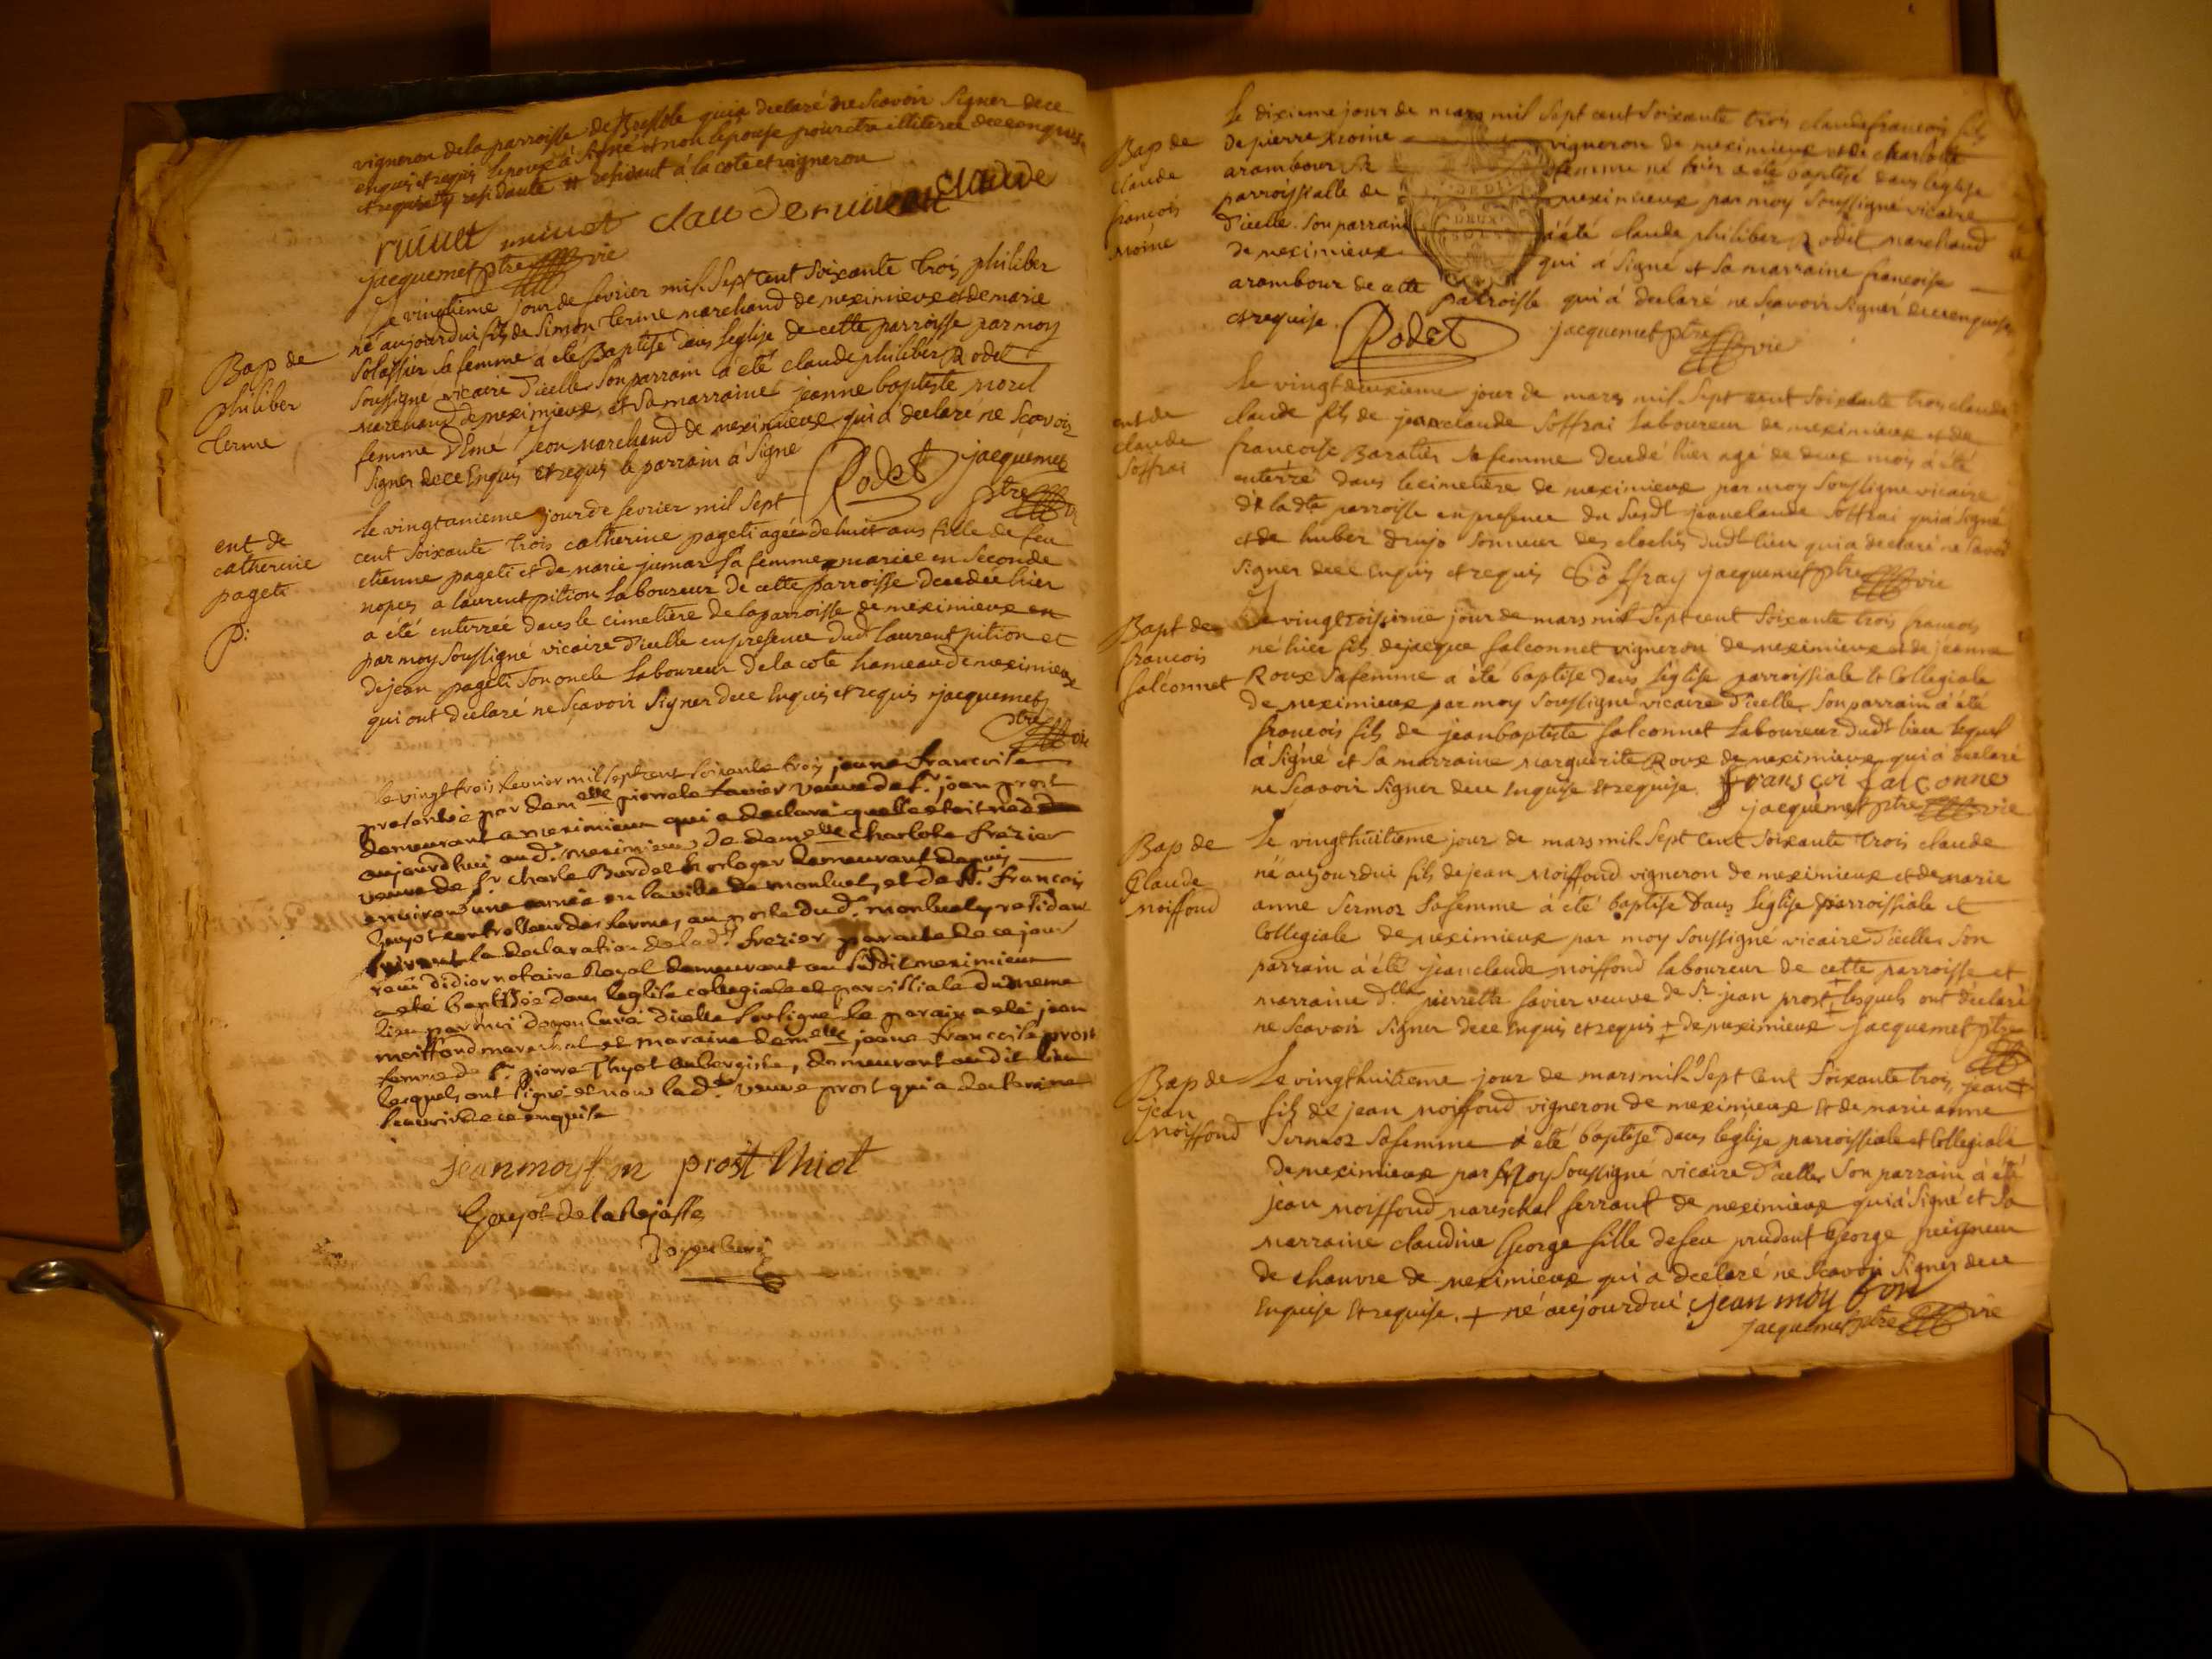 vigneron dela parroisse de qui a declaré ne scavoir signer dece
enquis et requis lepoux à signé et non lepouse pour etre illiteree dece enquise
et requise residante et residant à la cote et vigneron
ruivet minet claude ruivet claude
jacquemet ptre vic
Bap de
philiber
terme
Le vingtieme jour de fevrier mil sept cent soixante trois philiber
né aujourdui fils de Simon terme marchand de meximieux et de marie
Solassier sa femme a eté Baptisé dans leglise de cette parroisse par moy
soussigné vicaire d'icelle son parrain à eté claude philiber Rodet
marchand de meximieux et sa marraine jeanne baptiste morel
femme d'Eme jeon marchand de meximieux qui a declaré ne scavoir
signer dece enquis et requis le parrain à signé
Rodet jacquemet
ptre vic
ent de
catherine
pageti
p:
le vingtunieme jour de fevrier mil sept
cent soixante trois catherine pageti agée de huit ans fille de feu
etienne pageti et de marie jumar sa femme mariée en seconde
nopces a laurent pition laboureur de cette parroisse decedée hier
a été enterrée dans le cimetiere de la parroisse de meximieux en
par moy soussigné vicaire d'icelle en presence dud laurent pition et
de jean pageti son oncle laboureur de la cote hameau de meximieux
qui ont declaré ne scavoir signer dece enquis et requis jacquemet
ptre vic
le vingt trois fevrier mil sept cent soixante trois jeane francoise
presentée par dem.elle pierrete favier veuve de s.r jean prost
demeurant a meximieux qui a declaré quelle etoit née
aujourdhui aud. meximieux de dem.elle charlote frezier
veuve de s.r charle Burdel horloger demeurant depuis
environ une année en la ville de monluel, et de s.r francois
Goyot controlleur des fermes au poste dud. monluel, residant
suivant la declaration de lad.te frezier par acte de ce jour
recu didier notaire Royal demeurant au susdit meximieux
a eté baptisée dans leglise collegiale et paroissiale du meme
lieu par moi doyen curé dicelle soussigné le parain a eté jean
moiffond marechal et maraine dem.elle jeane francoise prost
femme de s.r pierre Thyot aubergiste, demeurant audit lieu
lesquels ont signé et non lad.te veuve prost qui a declaré ne
scavoir de ce enquise
jean moyfon prost thiot
Goyot de la
doyen curé
Bap de
claude
francois
moine
Le dixieme jour de mars mil sept cent soixante trois claude francois fils
de pierre moine vigneron de meximieux et de charlotte
arambour sa femme né hier a eté baptisé dans leglise
parroissialle de meximieux par moy soussigné vicaire
d'icelle. son parrain à été claude philiber Rodet marchand
de meximieux qui à signé et sa marraine francoise
arambour de cette parroisse qui à declaré ne scavoir signer dece enquise
et requise. Rodet jacquemet ptre vic
DEUX
SOLS
ent de
claude
soffrai
Le vingt deuxieme jour de mars mil sept cent soixante trois claude
claude fils de jean claude soffrai laboureur de meximieux et de
francoise Baratier sa femme decedé hier agé de deux mois à été
enterré dans le cimetiere de meximieux par moy soussigné vicaire
de ladte parroisse en presence du susdt jean claude soffrai qui à signé
et de huber drujo sonneur des cloches dudt lieu qui a declaré ne scavoir
signer dece enquis et requis Soffray jacquemet ptre vic
Bapt de
francois
falconnet
Le vingt troisieme jour de mars mil sept cent soixante trois francois
né hier fils de jacque falconnet vigneron de meximieux et de jeanne
Roux sa femme a été baptisé dans leglise parroissiale et Collegiale
de meximieux par moy soussigné vicaire d'icelle. son parrain à été
francois fils de jean baptiste falconnet laboureur dudt lieu lequel
à signé et sa marraine marguerite Roux de meximieux qui à declaré
ne scavoir signer dece enquise et requise. fransçoi falconne
jacquemet ptre vic
Bap de
Claude
moiffond
Le vingt huitieme jour de mars mil sept cent soixante trois claude
né aujourdui fils de jean moiffond vigneron de meximieux et de marie
anne Sermoz sa femme à été baptisé dans léglise parroissiale et
Collegiale de meximieux par moy soussigné vicaire d'icelle. son
parrain à été jean claude moiffond laboureur de cette parroisse et
marraine d.lle pierrette favier veuve de sr jean prost + lesquels ont declaré
ne scavoir signer dece enquis et requis + de meximieux jacquemet ptre
Bap de
jean
moiffond
Le vingt huitieme jour de mars mil sept cent soixante trois jean +
fils de jean moiffond vigneron de meximieux et de marie anne
Sermoz sa femme à été baptisé dans leglise parroissiale et Collegiale
de meximieux par Moy soussigné vicaire d'icelle son parrain à été
jean moiffond mareschal ferrant de meximieux qui à signé et sa
marraine claudine George fille de feu prudent George peigneur
de chanvre de meximieux qui a declaré ne scavoir signer dece
enquise et requise. + né aujourdui jean moy fon
jacquemet ptre vic